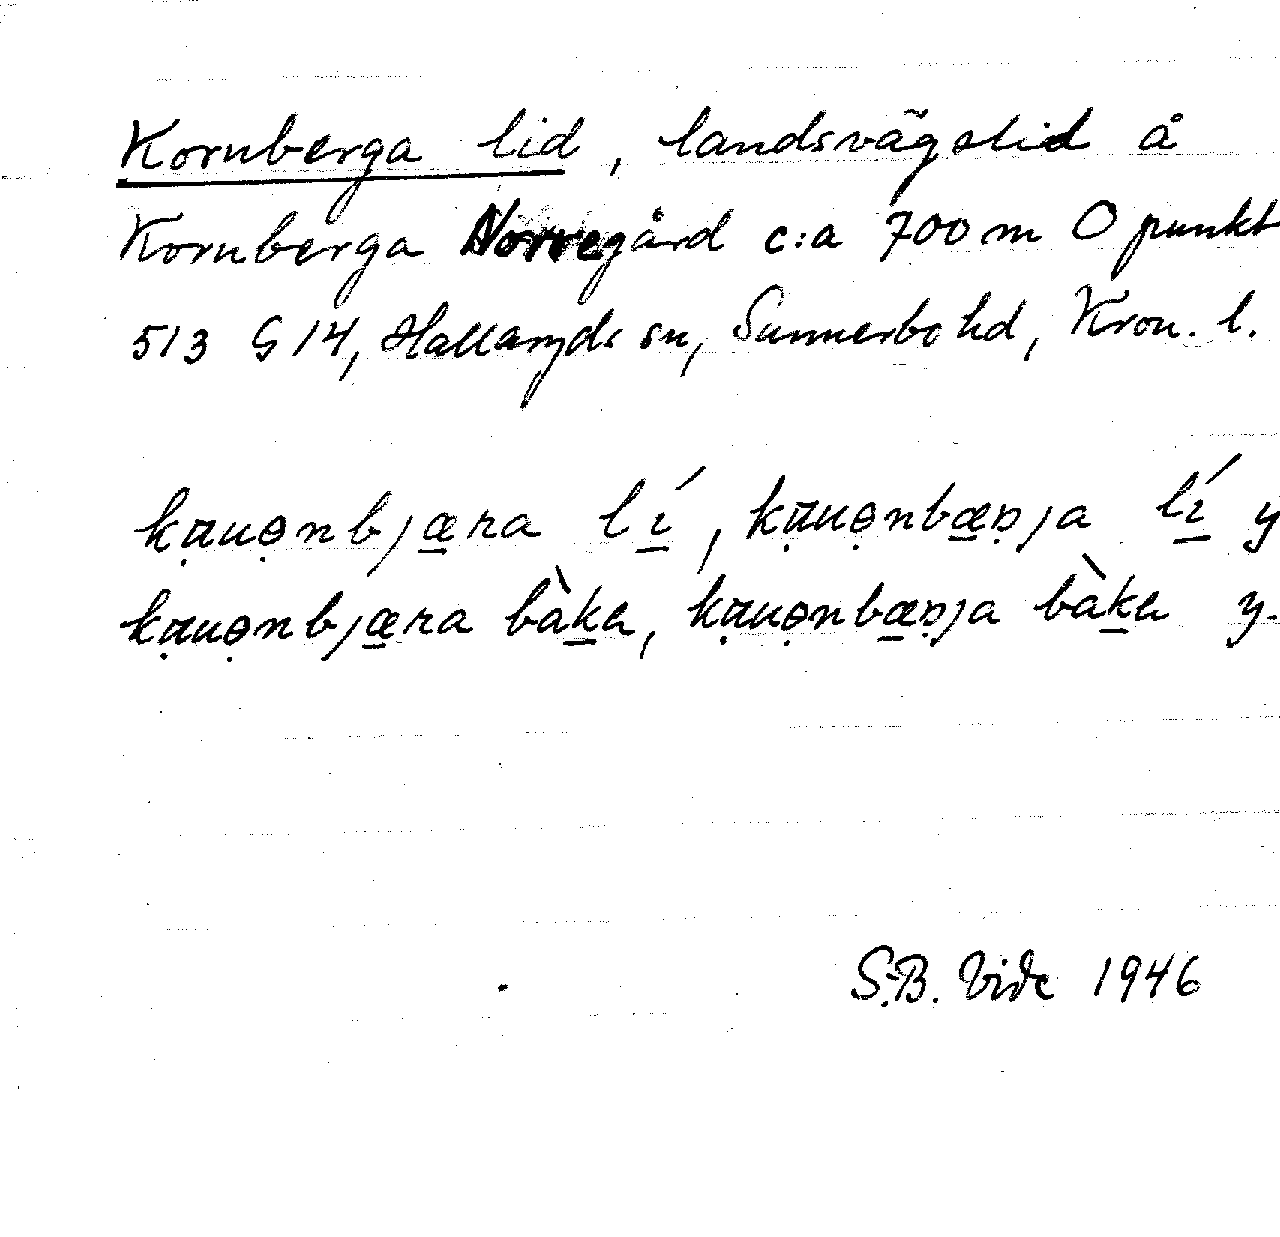 Kornberga lid, landsvägslid å
Kornberga Norregård c:a 700 m O punkt
513 G 14, Hallaryds sn, Sunnerbo hd, Kron. l.
kąuǫnbjæra lí, kąuǫnbæŋja lí y
kąuǫnbjæra bàka, kąuǫnbæŋja bàka y.
S.B. Vide 1946